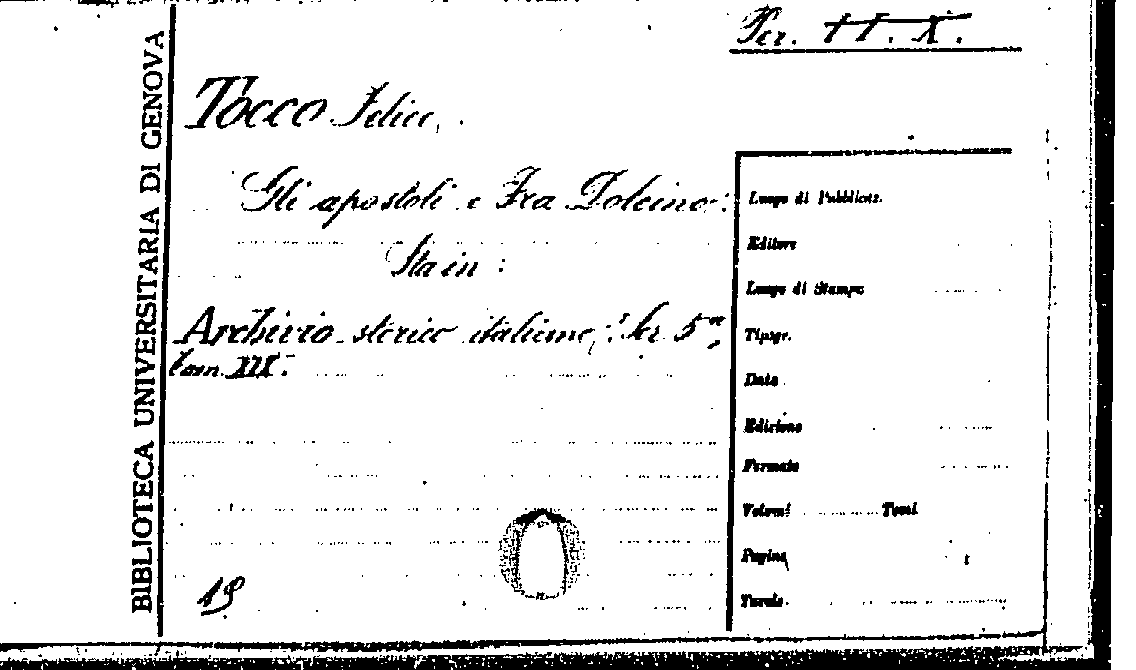 Per. II. X.
BIBLIOTECA UNIVERSITARIA DI GENOVA
Tocco Felice,
Gli apostoli e Fra Dolcino:
Sta in:
Archivio storico italiano, Ser 5ª,
tom. XIX.
19
Luogo di Pubblicaz.
Editore
Luogo di Stampa
Tipogr.
Data
Edizione
Formato
Volumi Tomi
Pagine
Tavole